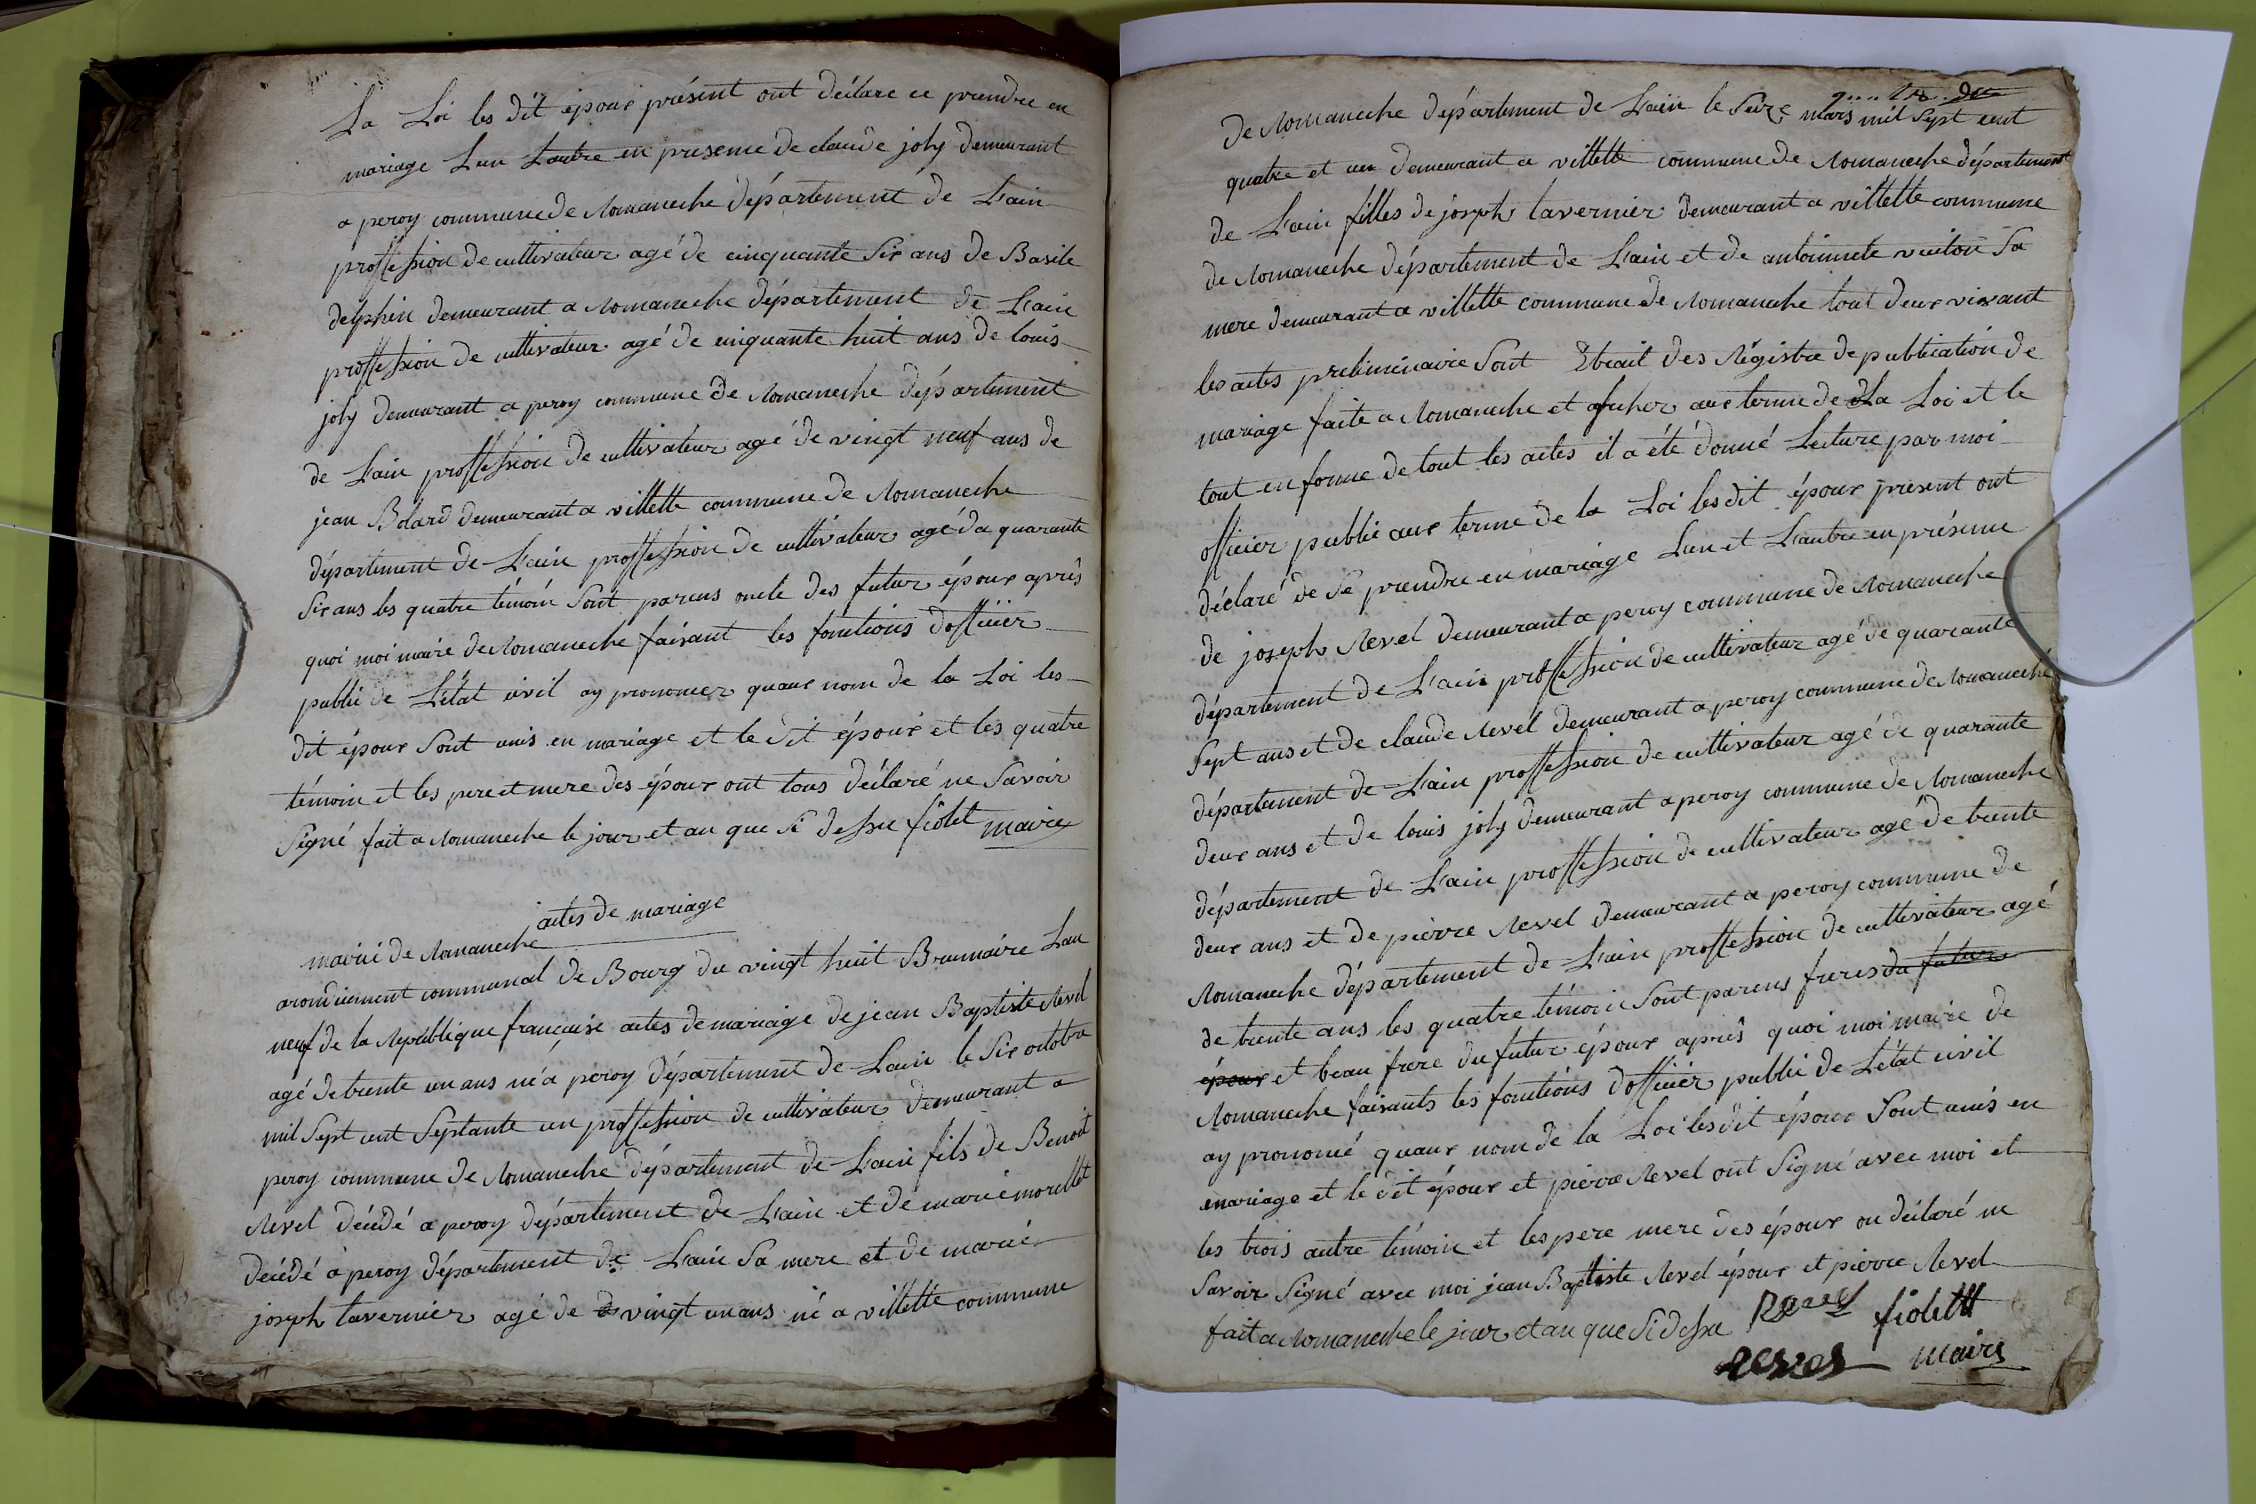 La Loi les dit épour présent ont déclare ce prendre en
mariage Lun Lautre en presence de claude joly demeurant
a peroy commune de Romaneche département de L'ain
proffession de cultivateur agé de cinquante Six ans de Basile
delphin demeurant a Romaneche département de L'ain
proffession de cultivateur agé de cinquante huit ans de louis
joly demeurant a peroy commune de Romaneche département
de L'ain proffession de cultivateur agé de vingt neuf ans de
jean Bolard demeurant a villette commune de Romaneche
département de L'ain proffession de cultivateur agé da quarante
Six ans les quatre témoin Sont parens oncle des futur épour après
quoi moi maire de Romaneche faisant les fonctions dofficier
public de L'état civil ay prononcer quaur nom de la Loi les
dit épour Sont unis en mariage et le dit épour et les quatre
témoin et les pere et mere des épour ont tous déclaré ne Savoir
Signé fait a Romaneche le jour et an que Si dessu fiolet maire
actes de mariage
mairie de Romaneche
arondicement communal de Bourg du vingt huit Brumaire Lan
neuf de la République française actes de mariage de jean Baptiste Revel
agé de trente un ans né a peroy département de Lain le Six octobre
mil Sept cent Septante un proffession de cultivateur demeurant a
peroy commune de Romaneche département de L'ain fils de Benoit
Revel décédé a peroy département de L'ain et de marie morellet
decédé a peroy département de L'ain Sa mere et de marie
joseph tavernier agé de vingt un ans né a villette commune
de Romaneche département de L'ain le Seize mars mil Sept cent
quatre et un demeurant a villette commune de Romaneche département
de L'ain filles de joseph tavernier demeurant a villette commune
de Romaneche département de L'ain et de antoinnete vuiton Sa
mere demeurant a villette commune de Romaneche tout deux vivant
les actes preliminaire Sont Etrait des Régistre de publication de
mariage faite a Romaneche et aficher aux terme de La Loi et le
tout en forme de tout les actes il a été donné Lecture par moi
officier public aux terme de la Loi les dit épour présent ont
déclaré de Se prendre en mariage Lun et Lautre en présence
de joseph Revel demeurant a peroy commune de Romaneche
département de L'ain proffession de cultivateur agé de quarante
Sept ans et de claude Revel demeurant a peroy commune de Romaneche
département de L'ain proffession de cultivateur agé de quarante
deux ans et de louis joly demeurant a peroy commune de Romaneche
département de L'ain proffession de cultivateur agé de trente
deux ans et de pierre Revel demeurant a peroy commune de
Romaneche département de L'ain proffession de cultivateur agé
de trente ans les quatre témoin Sont parens freres du futur
épour et beau frere du futur épour après quoi moi maire de
Romaneche faisants les fonctions dofficier public de L'état civil
ay prononcé quaux nom de la Loi les dit épour Sont unis en
mariage et le dit épour et pierre Revel ont Signé avec moi et
les trois autre témoin et les pere mere des épour on déclaré ne
Savoir Signé avec moi jean Baptiste Revel épour et pierre Revel
fait a Romaneche le jour et an que Si dessu Revel fiolet
revel maire